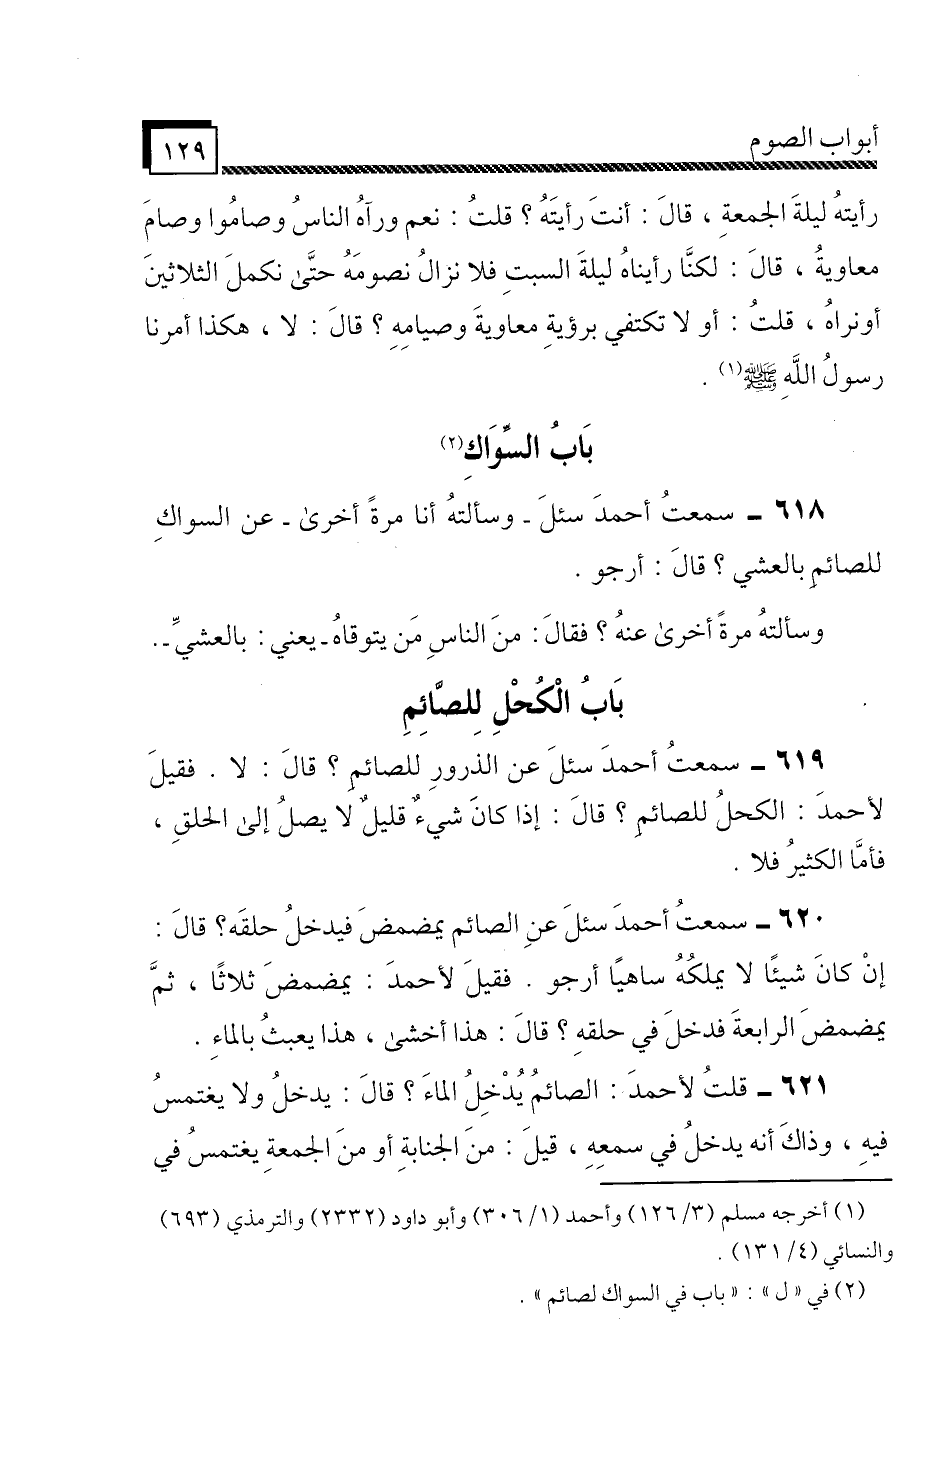 أبواب الصوم
١٢٩
رأيتهُ ليلةَ الجمعةِ ، قالَ : أنتَ رأيتَهُ ؟ قلتُ : نعم ورآهُ الناسُ وصامُوا وصامَ
معاويةُ ، قالَ : لكنَّا رأيناهُ ليلةَ السبتِ فلا نزالُ نصومَهُ حتَّىٰ نكملَ الثلاثينَ
أونراهُ ، قلتُ : أو لا تكتفي برؤيةِ معاويةَ وصيامِهِ ؟ قالَ : لا ، هكذا أمرنا
رسولُ اللَّهِ ﷺ(١) .
بَابُ السِّوَاكِ(٢)
٦١٨ ـ سمعتُ أحمدَ سئلَ ـ وسألتهُ أنا مرةً أخرىٰ ـ عن السواكِ
للصائمِ بالعشي ؟ قالَ : أرجو .
وسألتهُ مرةً أخرىٰ عنهُ ؟ فقالَ : منَ الناسِ مَن يتوقاهُ ـ يعني : بالعشيِّ ـ .
بَابُ الْكُحْلِ لِلصَّائِمِ
٦١٩ ـ سمعتُ أحمدَ سئلَ عن الذرورِ للصائمِ ؟ قالَ : لا . فقيلَ
لأحمدَ : الكحلُ للصائمِ ؟ قالَ : إذا كانَ شيءٌ قليلٌ لا يصلُ إلىٰ الحلقِ ،
فأمَّا الكثيرُ فلا .
٦٢٠ ـ سمعتُ أحمدَ سئلَ عنِ الصائمِ يمضمضَ فيدخلُ حلقَه؟ قالَ :
إنْ كانَ شيئًا لا يملكُهُ ساهيًا أرجو . فقيلَ لأحمدَ : يمضمضَ ثلاثًا ، ثمَّ
يمضمضَ الرابعةَ فدخلَ في حلقهِ ؟ قالَ : هذا أخشىٰ ، هذا يعبثُ بالماءِ .
٦٢١ ـ قلتُ لأحمدَ : الصائمُ يُدْخِلُ الماءَ ؟ قالَ : يدخلُ ولا يغتمسُ
فيهِ ، وذاكَ أنه يدخلُ في سمعِهِ ، قيلَ : منَ الجنابةِ أو منَ الجمعةِ يغتمسُ في
(١) أخرجه مسلم (٣/ ١٢٦) وأحمد (١/ ٣٠٦) وأبو داود (٢٣٣٢) والترمذي (٦٩٣)
والنسائي (٤/ ١٣١) .
(٢) في « ل » : « باب في السواك لصائم » .